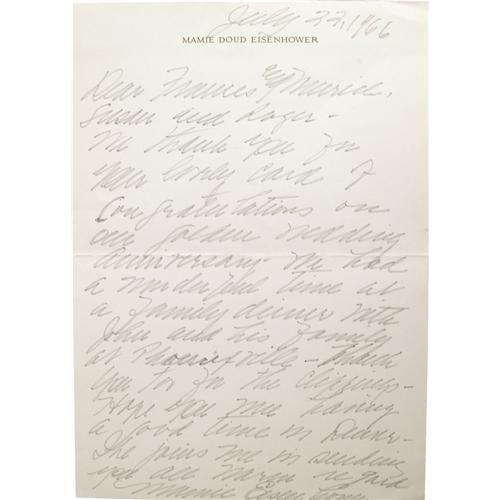 July 22, 1966
MAMIE DOUD EISENHOWER
Dear Frances, Muriel,
Susan and Roger -
We thank you for
your lovely card of
Congratulations on
our golden wedding
Anniversary - We had
a wonderful time at
a family dinner with
John and his family
at Phoenixville - Thank
you too for the clippings -
Hope you are having
a good time in Denver -
Ike joins me in sending
you all warm regard
Mamie Eisenhower